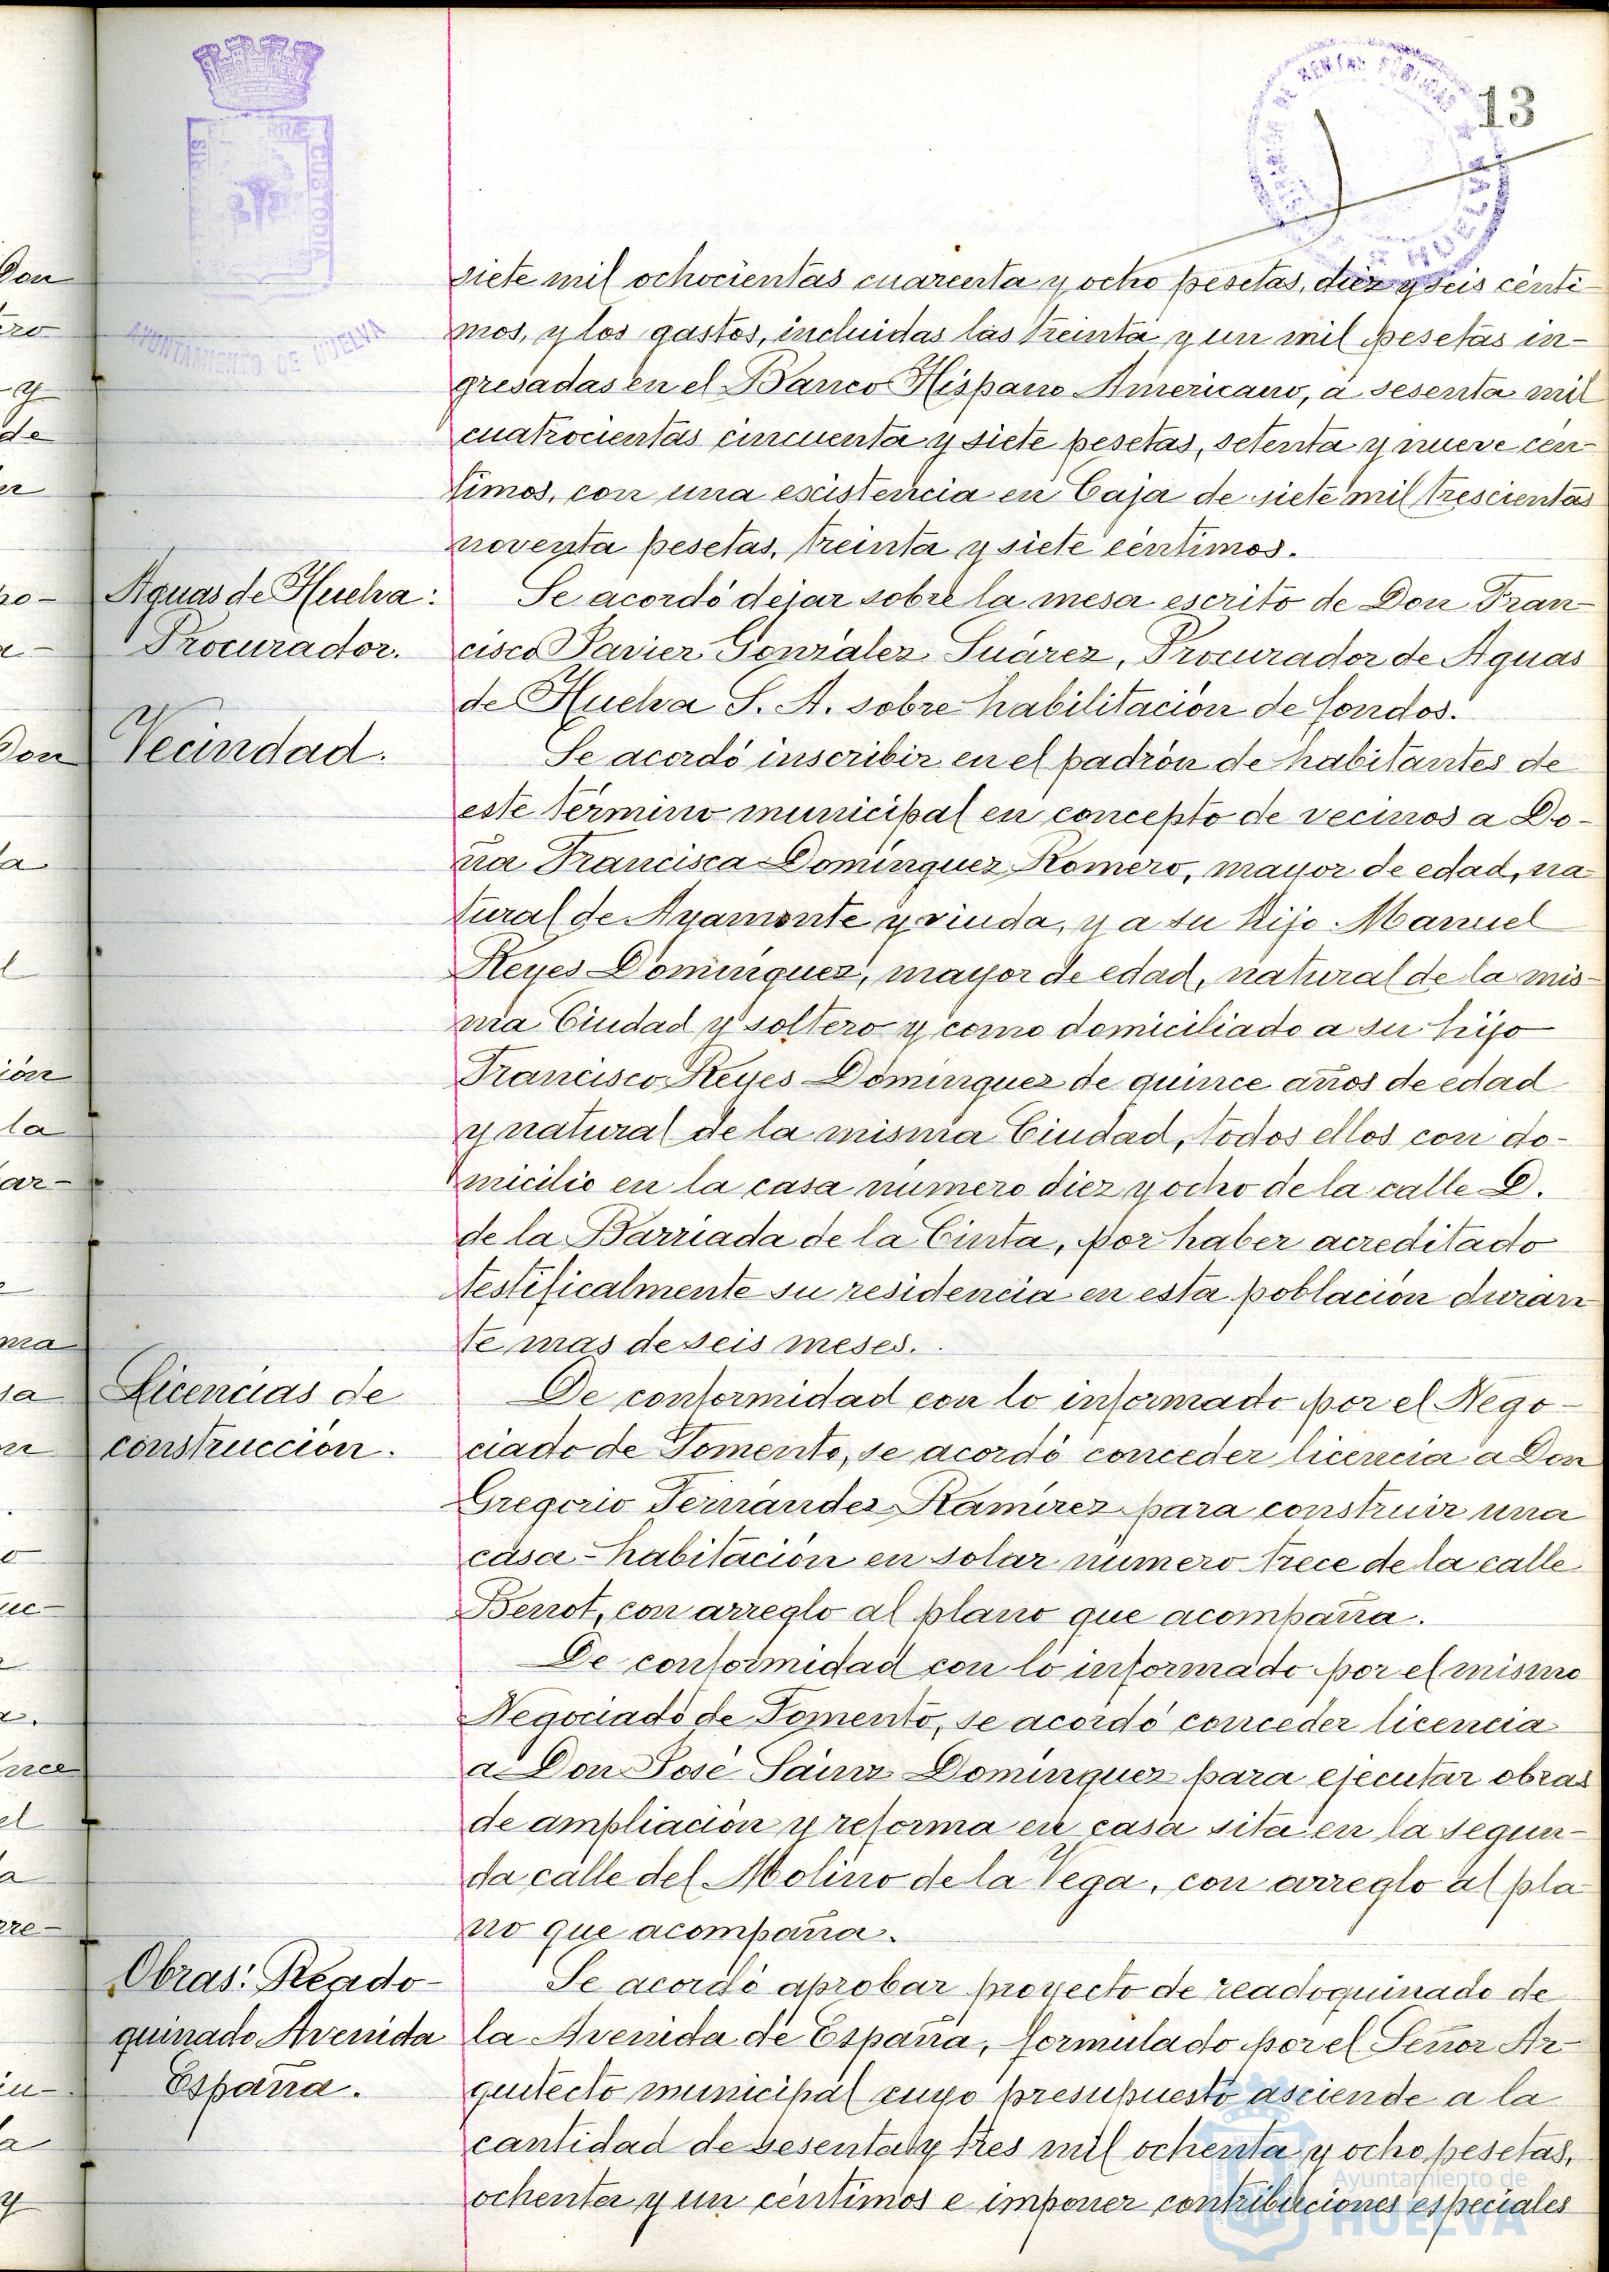 13
siete mil ochocientas cuarenta y ocho pesetas, diez y seis cénti-
mos, y los gastos, incluidas las treinta y un mil pesetas in-
gresadas en el Banco Hispano Americano, a sesenta mil
cuatrocientas cincuenta y siete pesetas, setenta y nueve cén-
timos, con una existencia en Caja de siete mil trescientas
noventa pesetas, treinta y siete céntimos.
Aguas de Huelva:
Procurador.
Se acordó dejar sobre la mesa escrito de Don Fran-
cisco Javier González Suárez, Procurador de Aguas
de Huelva S. A. sobre habilitación de fondos.
Vecindad.
Se acordó inscribir en el padrón de habitantes de
este término municipal en concepto de vecinos a Do-
ña Francisca Domínguez Romero, mayor de edad, na-
tural de Ayamonte y viuda, y a su hijo Manuel
Reyes Domínguez, mayor de edad, natural de la mis-
ma Ciudad y soltero y como domiciliado a su hijo
Francisco Reyes Domínguez de quince años de edad
y natural de la misma Ciudad, todos ellos con do-
micilio en la casa número diez y ocho de la calle D.
de la Barriada de la Cinta, por haber acreditado
testificalmente su residencia en esta población duran
te mas de seis meses.
Licencias de
construcción.
De conformidad con lo informado por el Nego-
ciado de Fomento, se acordó conceder licencia a Don
Gregorio Fernández Ramírez para construir una
casa-habitación en solar número trece de la calle
Benot, con arreglo al plano que acompaña.
De conformidad con lo informado por el mismo
Negociado de Fomento, se acordó conceder licencia
a Don José Sáinz Domínguez para ejecutar obras
de ampliación y reforma en casa sita en la segun-
da calle del Molino de la Vega, con arreglo al pla-
no que acompaña.
Obras: Reado-
quinado Avenida
España.
Se acordó aprobar proyecto de readoquinado de
la Avenida de España, formulado por el Señor Ar-
quitecto municipal cuyo presupuesto asciende a la
cantidad de sesenta y tres mil ochenta y ocho pesetas,
ochenta y un céntimos e imponer contribuciones especiales
AYUNTAMIENTO DE HUELVA
CUSTODIA
Ayuntamiento de
HUELVA